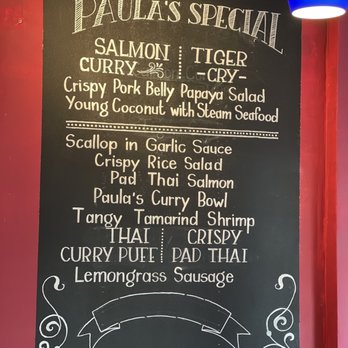 PAULA'S SPECIAL
SALMON CURRY
TIGER -CRY-
Crispy Pork Belly Papaya Salad
Young Coconut with Steam Seafood
Scallop in Garlic Sauce
Crispy Rice Salad
Pad Thai Salmon
Paula's Curry Bowl
Tangy Tamarind Shrimp
THAI CURRY PUFF
CRISPY PAD THAI
Lemongrass Sausage